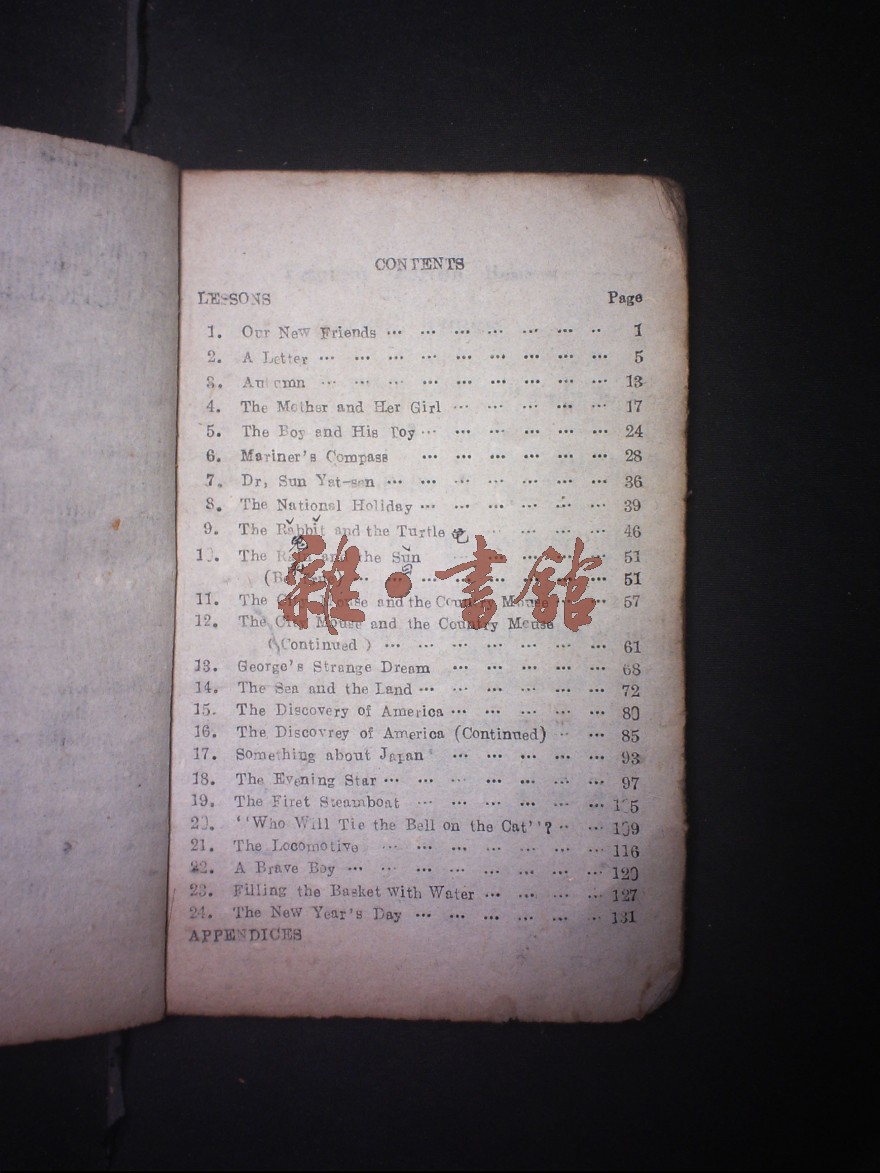 CONTENTS
LESSONS Page
1. Our New Friends ... ... ... ... ... ... .. 1
2. A Letter ... ... ... ... ... ... ... ... ... 5
3. Autumn ... ... ... ... ... ... ... ... ... 13
4. The Mother and Her Girl ... ... ... ... ... 17
5. The Boy and His Toy ... ... ... ... ... ... 24
6. Mariner's Compass ... ... ... ... ... ... 28
7. Dr, Sun Yat-sen ... ... ... ... ... ... ... 36
8. The National Holiday ... ... ... ... ... ... 39
9. The Rabbit and the Turtle ... ... ... ... 46
10. The and the Sun ... ... ... ... ... 51
... ... ... ... ... ... ... 51
11. The City Mouse and the Country Mouse ... ... 57
12. The City Mouse and the Country Mouse
(Continued) ... ... ... ... ... ... ... 61
13. George's Strange Dream ... ... ... ... ... 68
14. The Sea and the Land ... ... ... ... ... ... 72
15. The Discovery of America ... ... ... ... ... 80
16. The Discovrey of America (Continued) ... ... 85
17. Something about Japan ... ... ... ... ... 93
18. The Evening Star ... ... ... ... ... ... ... 97
19. The First Steamboat ... ... ... ... ... ... 105
20. ''Who Will Tie the Bell on the Cat''? .. ... 109
21. The Locomotive ... ... ... ... ... ... ... 116
22. A Brave Boy ... ... ... ... ... ... ... ... 120
23. Filling the Basket with Water ... ... ... ... 127
24. The New Year's Day ... ... ... ... ... ... 131
APPENDICES
雜·書館